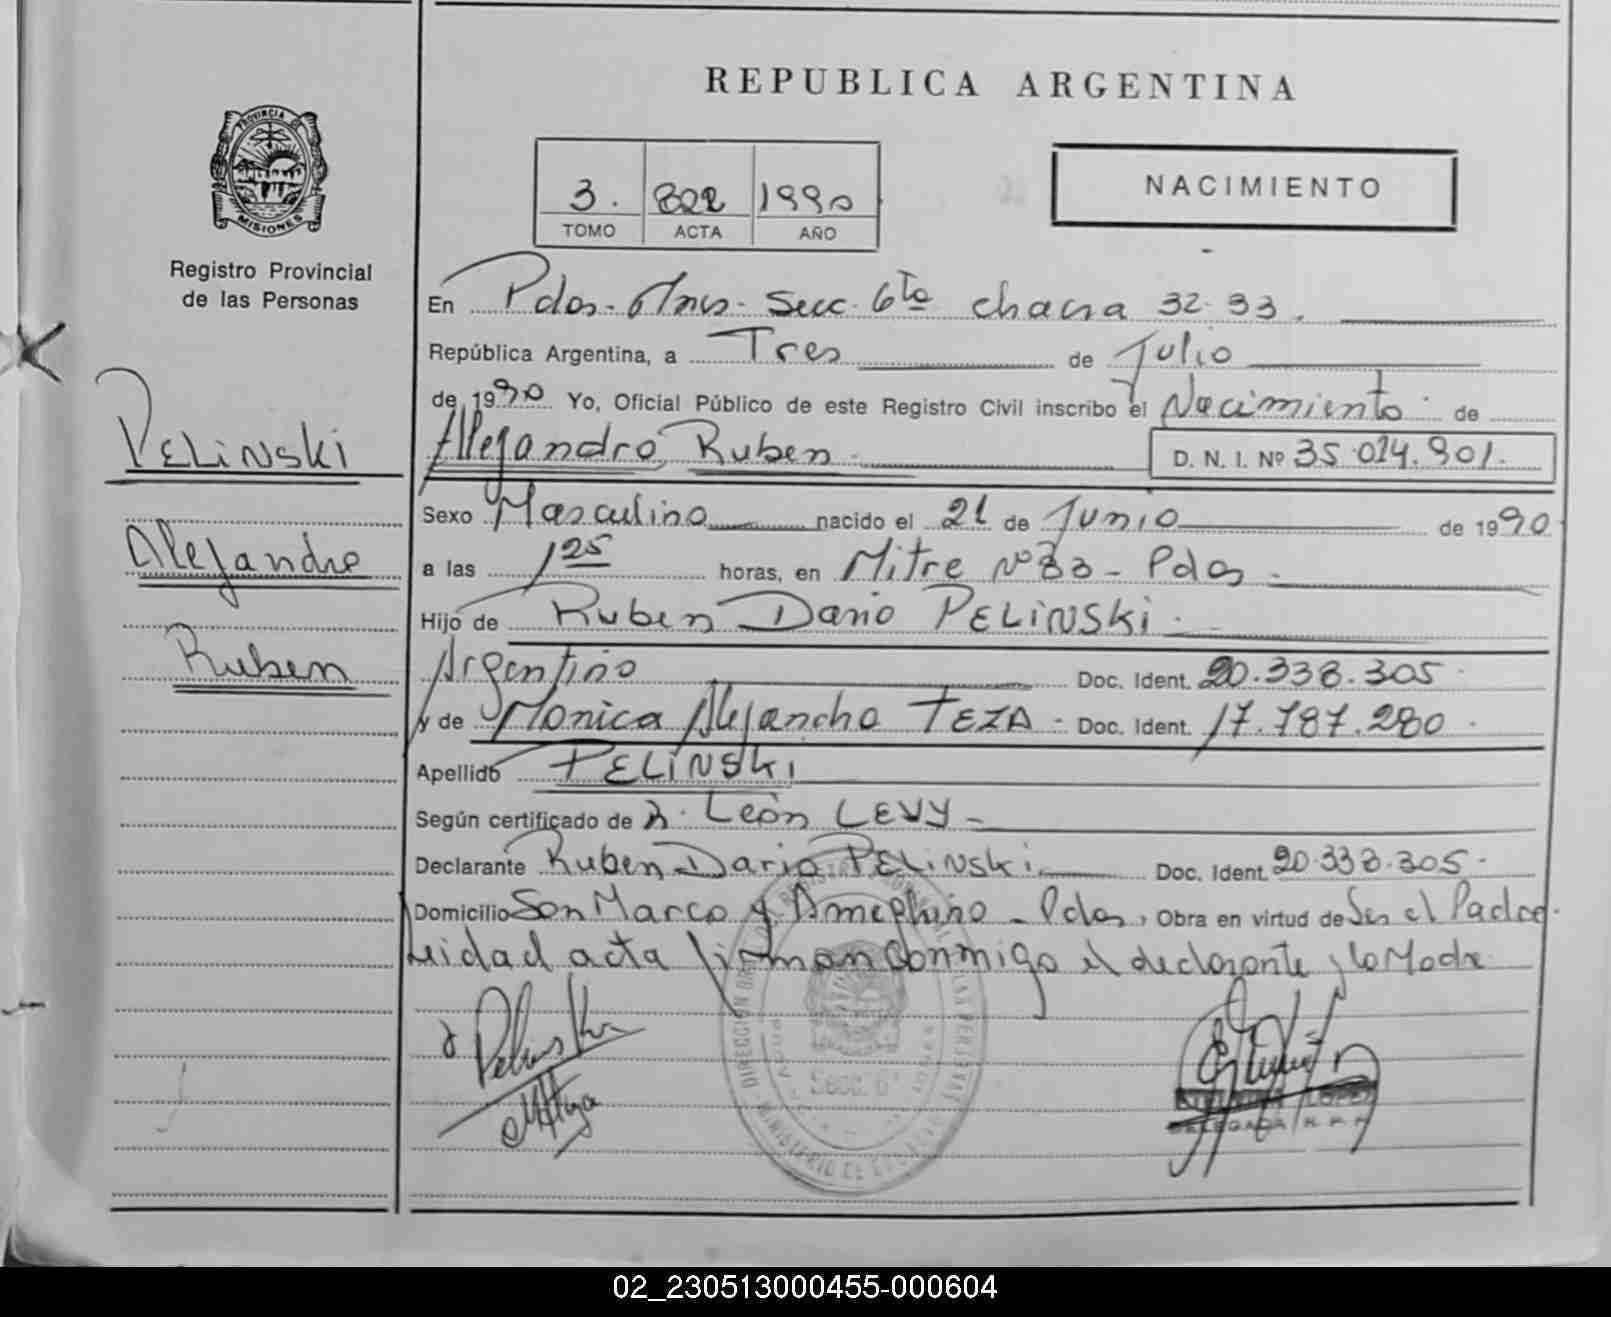 REPUBLICA ARGENTINA
PROVINCIA DE
MISIONES
Registro Provincial
de las Personas
3. 822 1990
TOMO ACTA AÑO
NACIMIENTO
En Pdas. Mnes. Secc. 6ta chacra 32-33.
República Argentina, a Tres de Julio
de 1990 Yo, Oficial Público de este Registro Civil inscribo el Nacimiento de
Alejandro Ruben. D. N. I. Nº 35.014.901.
PELINSKI
Alejandro
Ruben
Sexo Masculino nacido el 21 de Junio de 1990
a las 1 25 horas, en Mitre Nº 33 - Pdas.
Hijo de Ruben Dario PELINSKI.
Argentino Doc. Ident. 20.338.305.
y de Monica Alejandra TEZA - Doc. Ident. 17.787.280.
Apellido PELINSKI
Según certificado de Dr. León LEVY -
Declarante Ruben Dario PELINSKI Doc. Ident. 20.338.305.
Domicilio San Marco y Ameghino - Pdas, Obra en virtud de Ser el Padre.
Leidad acta firman conmigo el declarante y la Madre
SECC. 6ª
LOPEZ
DELEGADA R.P.P.
02_230513000455-000604